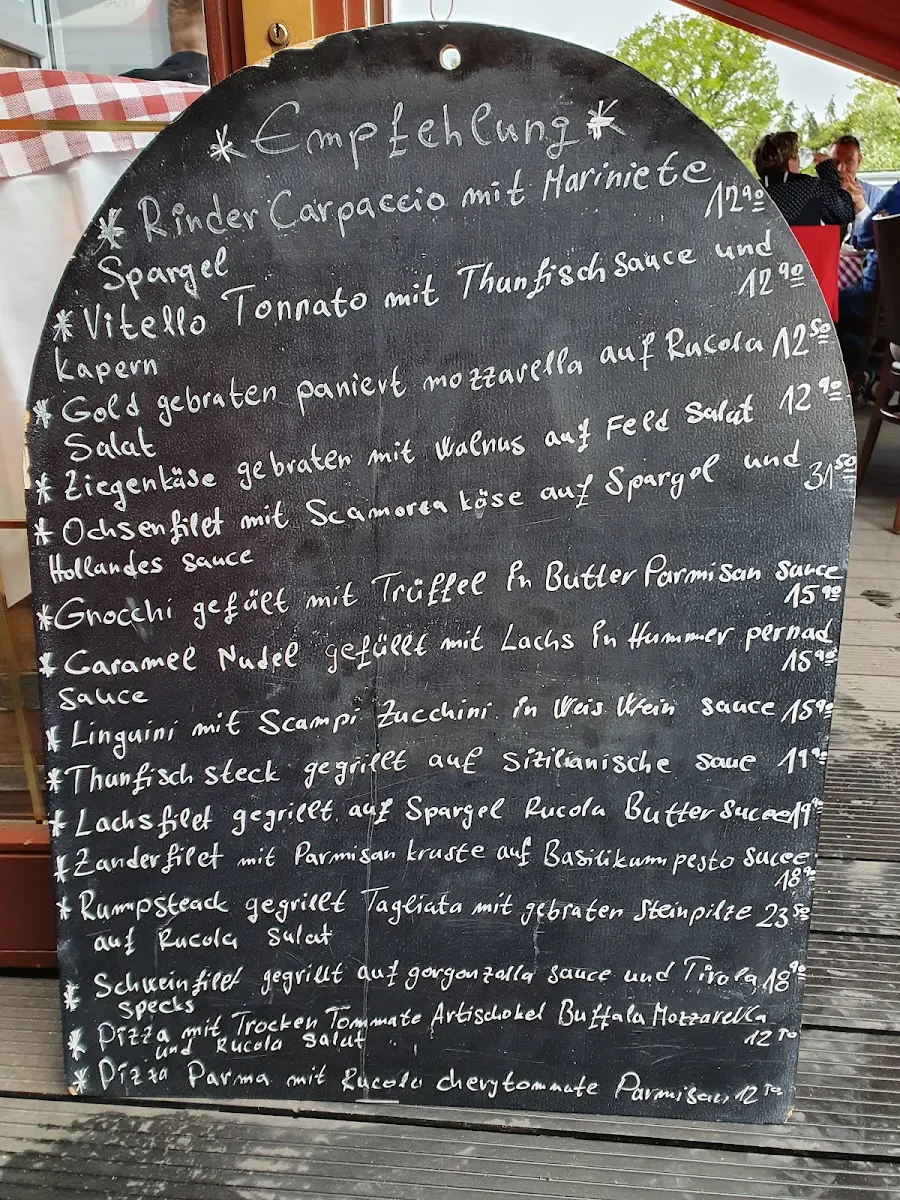 * Empfehlung *
* Rinder Carpaccio mit Hariniete 12⁹⁰
Spargel
* Vitello Tonnato mit Thunfisch sauce und 12⁹⁰
kapern
* Gold gebraten paniert mozzarella auf Rucola 12⁵⁰
Salat
* Ziegenkäse gebraten mit Walnus auf Feld Salat 12⁹⁰
* Ochsenfilet mit Scamorza käse auf Spargel und 31⁵⁰
Hollandes sauce
* Gnocchi gefült mit Trüffel in Butter Parmisan sauce
15⁹⁰
* Caramel Nudel gefüllt mit Lachs in Hummer pernad
15⁹⁰
sauce
* Linguini mit Scampi Zucchini in Weis Wein sauce 15⁹⁰
* Thunfisch steck gegrillt auf sizilianische saue 19⁹⁰
* Lachsfilet gegrillt auf Spargel Rucola Butter sucee 19⁹⁰
* Zanderfilet mit Parmisan kruste auf Basilikum pesto sucee
18⁹⁰
* Rumpsteack gegrillt Tagliata mit gebraten steinpilze 23⁵⁰
auf Rucola Salat
* Schweinfilet gegrillt auf gorgonzolla sauce und Tirola 18⁹⁰
specks
* Pizza mit Trocken Tommate Artischokel Buffala Mozzarella
und Rucola Salat 12⁵⁰
* Pizza Parma mit Rucola cherytommate Parmisan 12⁵⁰